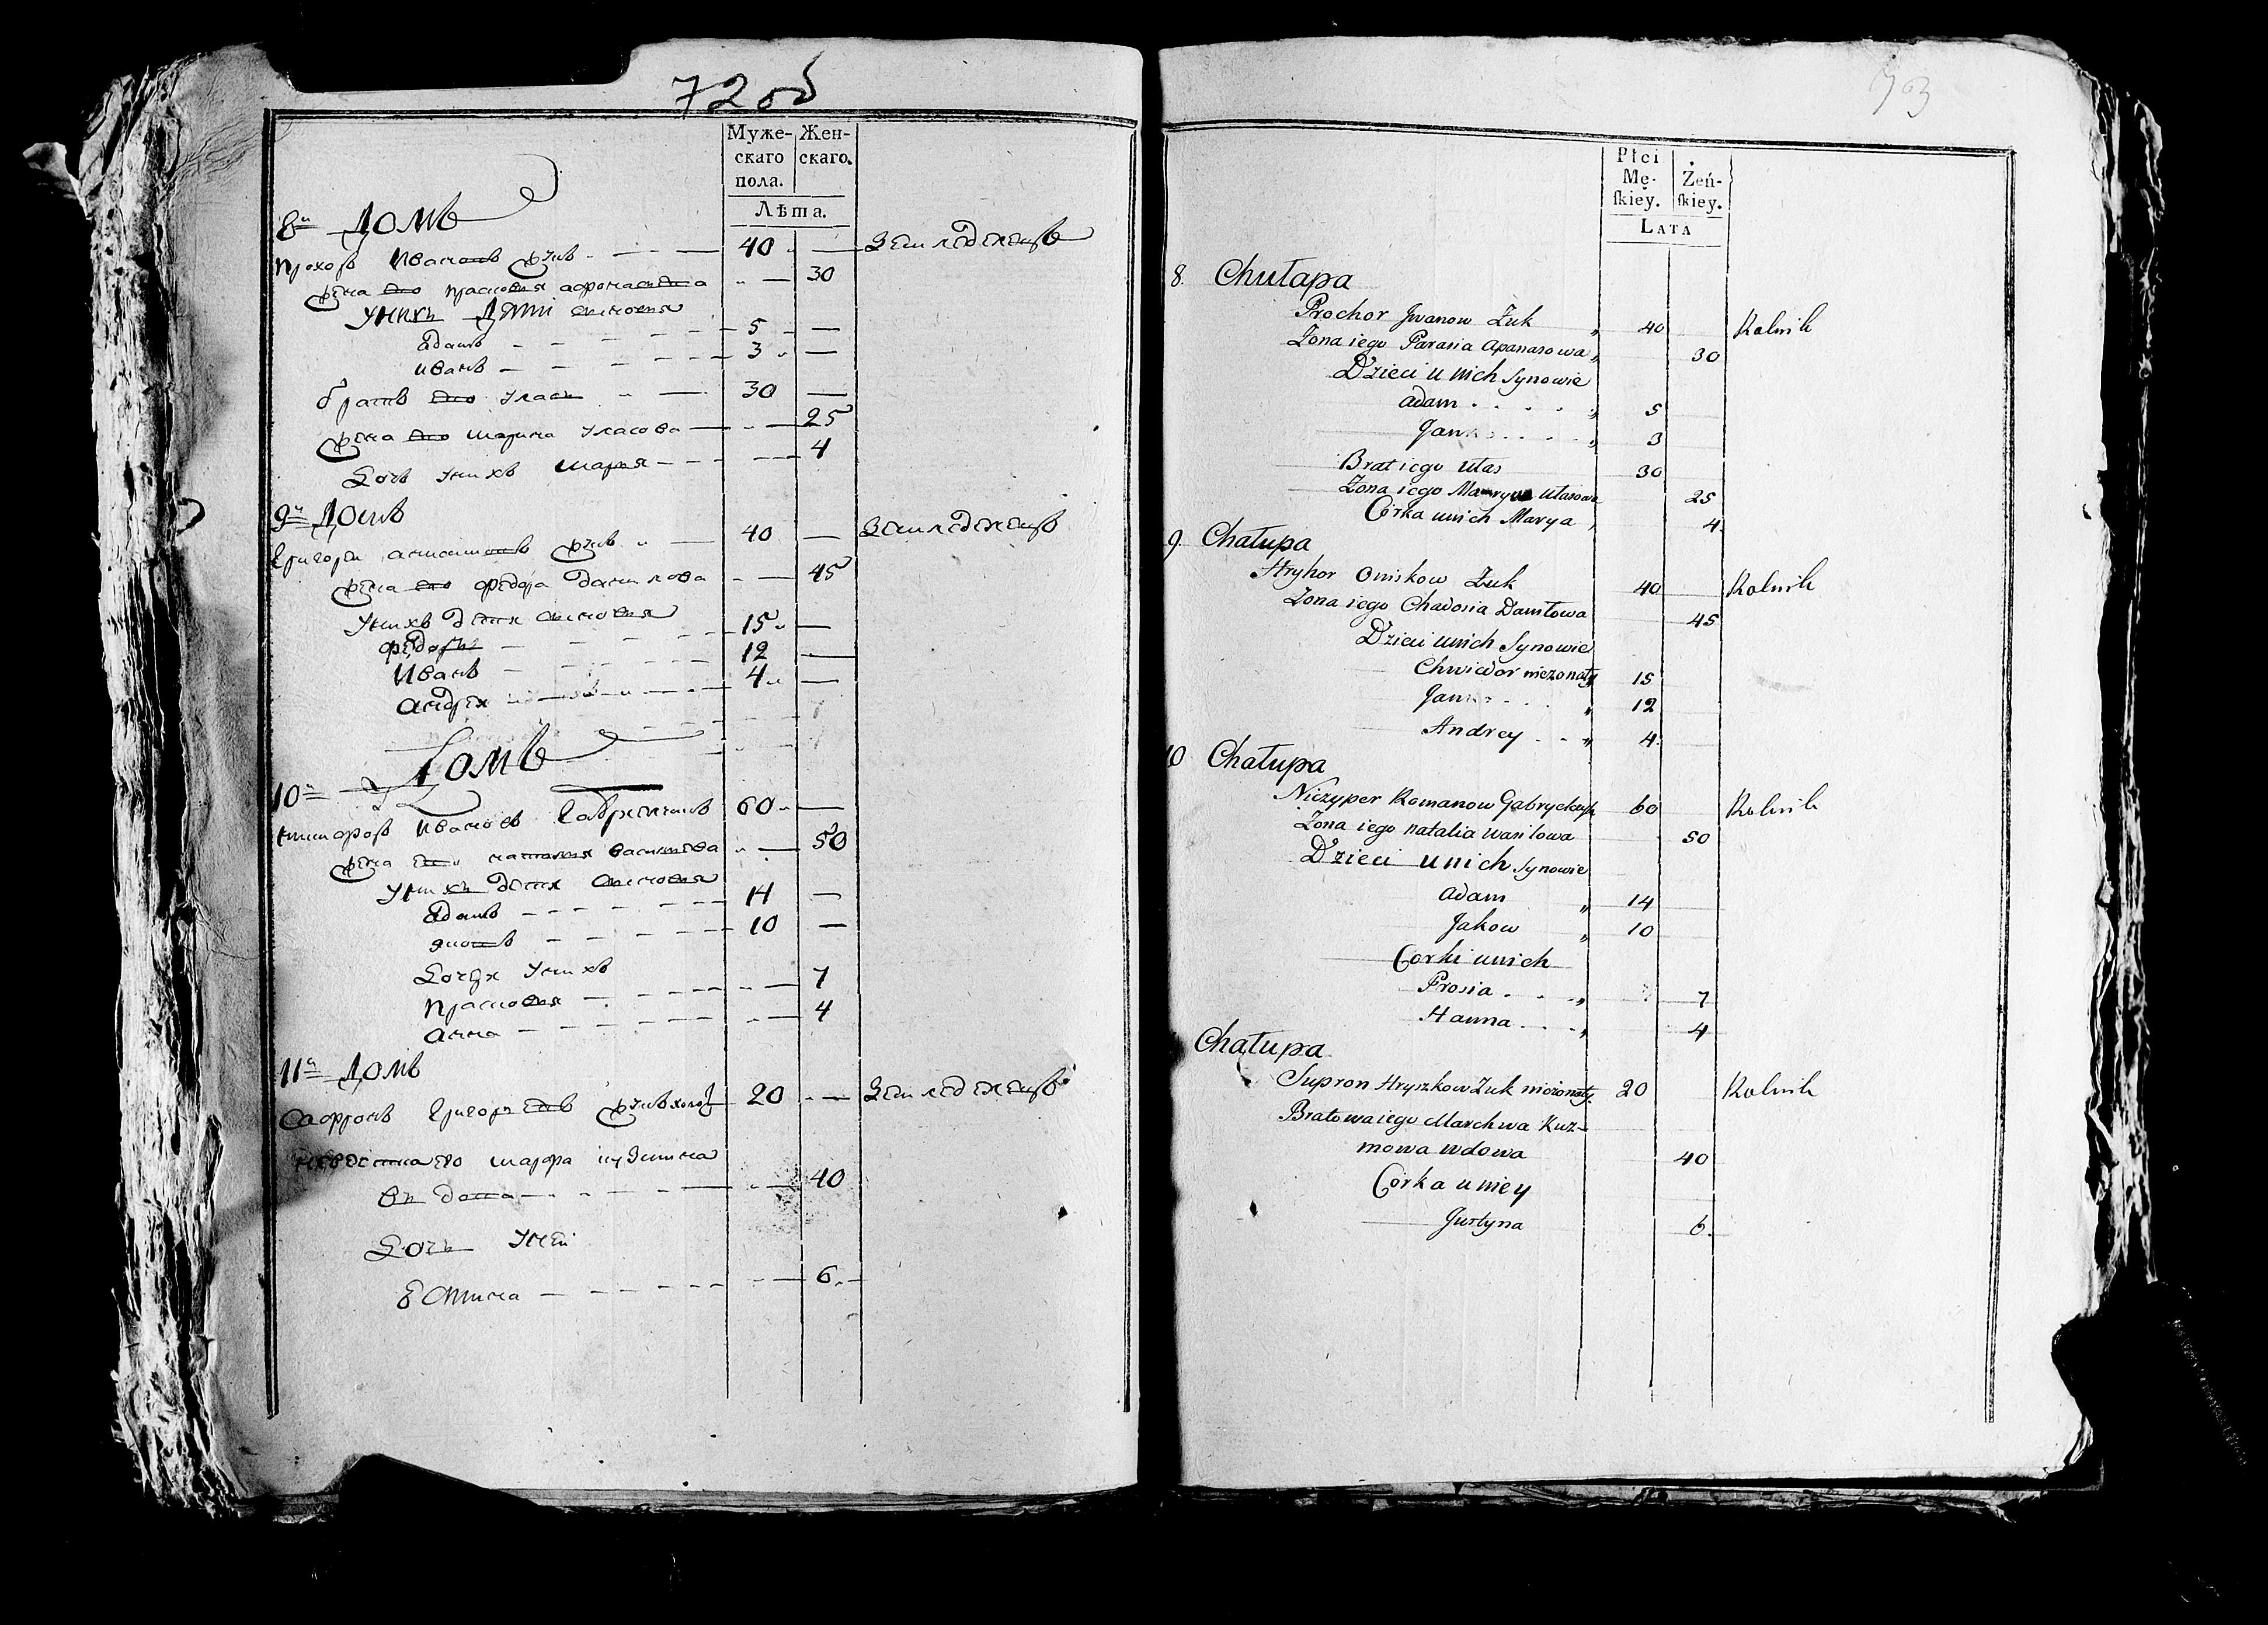 72 об
Муже- Жен-
скаго скаго.
пола.
Лѣта.
8й Домъ
Прохоръ Ивановъ Жукъ 40 Земледелецъ
жена его Прасковия Афонасиева 30
У нихъ Дети Сыновия
Адамъ 5
Иванъ 3
братъ его Уласъ 30
жена его Марина Уласова 25
Дочь у нихъ Марья 4
9й Домъ
Григори Анисимовъ Жукъ 40 Земледелецъ
жена его Федора Данилова 45
У нихъ дети Сыновия
Федоръ 15
Иванъ 12
Андреи 4
10й Домъ
Никифоръ Иванов 60
жена его Наталия Василиева 50
У нихъ дети Сыновия
Адамъ 14
Яковъ 10
Дочери у нихъ
Прасковия 7
Анна 4
11й Домъ
Сафронъ Григориевъ Жукъ холос 20 Земледелецъ
невестка его Марфа Кузмина
вдова 40
Дочь у ней
Естина 6
73
Płci
Mę- Żeń-
ſkiey. ſkiey.
Lata
8. Chułapa
Prochor Jwanow Żuk 40 Rolnik
Zona iego Parasia Apanasowa 30
Dzieci u nich Synowie
Adam 5
Jan 3
Brat iego Ułas 30
Zona iego Maryna Ułasowa 25
Córka u nich Marya 4
9. Chałupa
Hryhor Oniskow Żuk 40 Rolnik
Zona iego Chadosia Daniłowa 45
Dzieci u nich Synowie
Chwiedor niezonaty 15
Jan 12
Andrey 4
10 Chałupa
Niczyper Romanow 60 Rolnik
Zona iego Natalia Wasilowa 50
Dzieci u nich Synowie
Adam 14
Jakow 10
Corki u nich
Prosia 7
Hanna 4
Chałupa
Supron Hryszkow Żuk niezonaty 20 Rolnik
Bratowa iego Marchwa Kuz-
mowa wdowa 40
Córka u niey
Justyna 6.